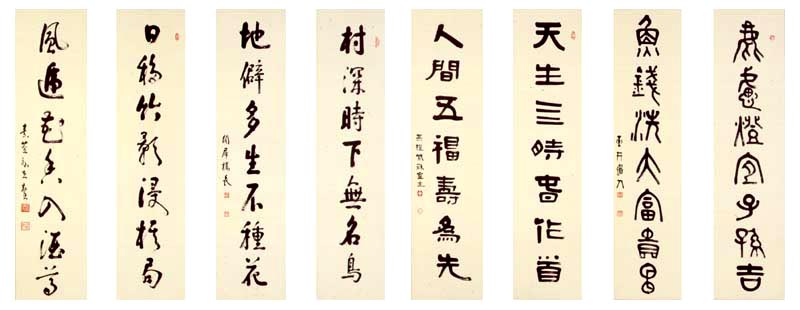 鹿盧燈宜子孫吉
魚錢洗大富貴昌
天生三時春作首
人間五福壽為先
村深時下無名鳥
地僻多生不種花
日移竹影侵棋局
風遞花香入酒尊